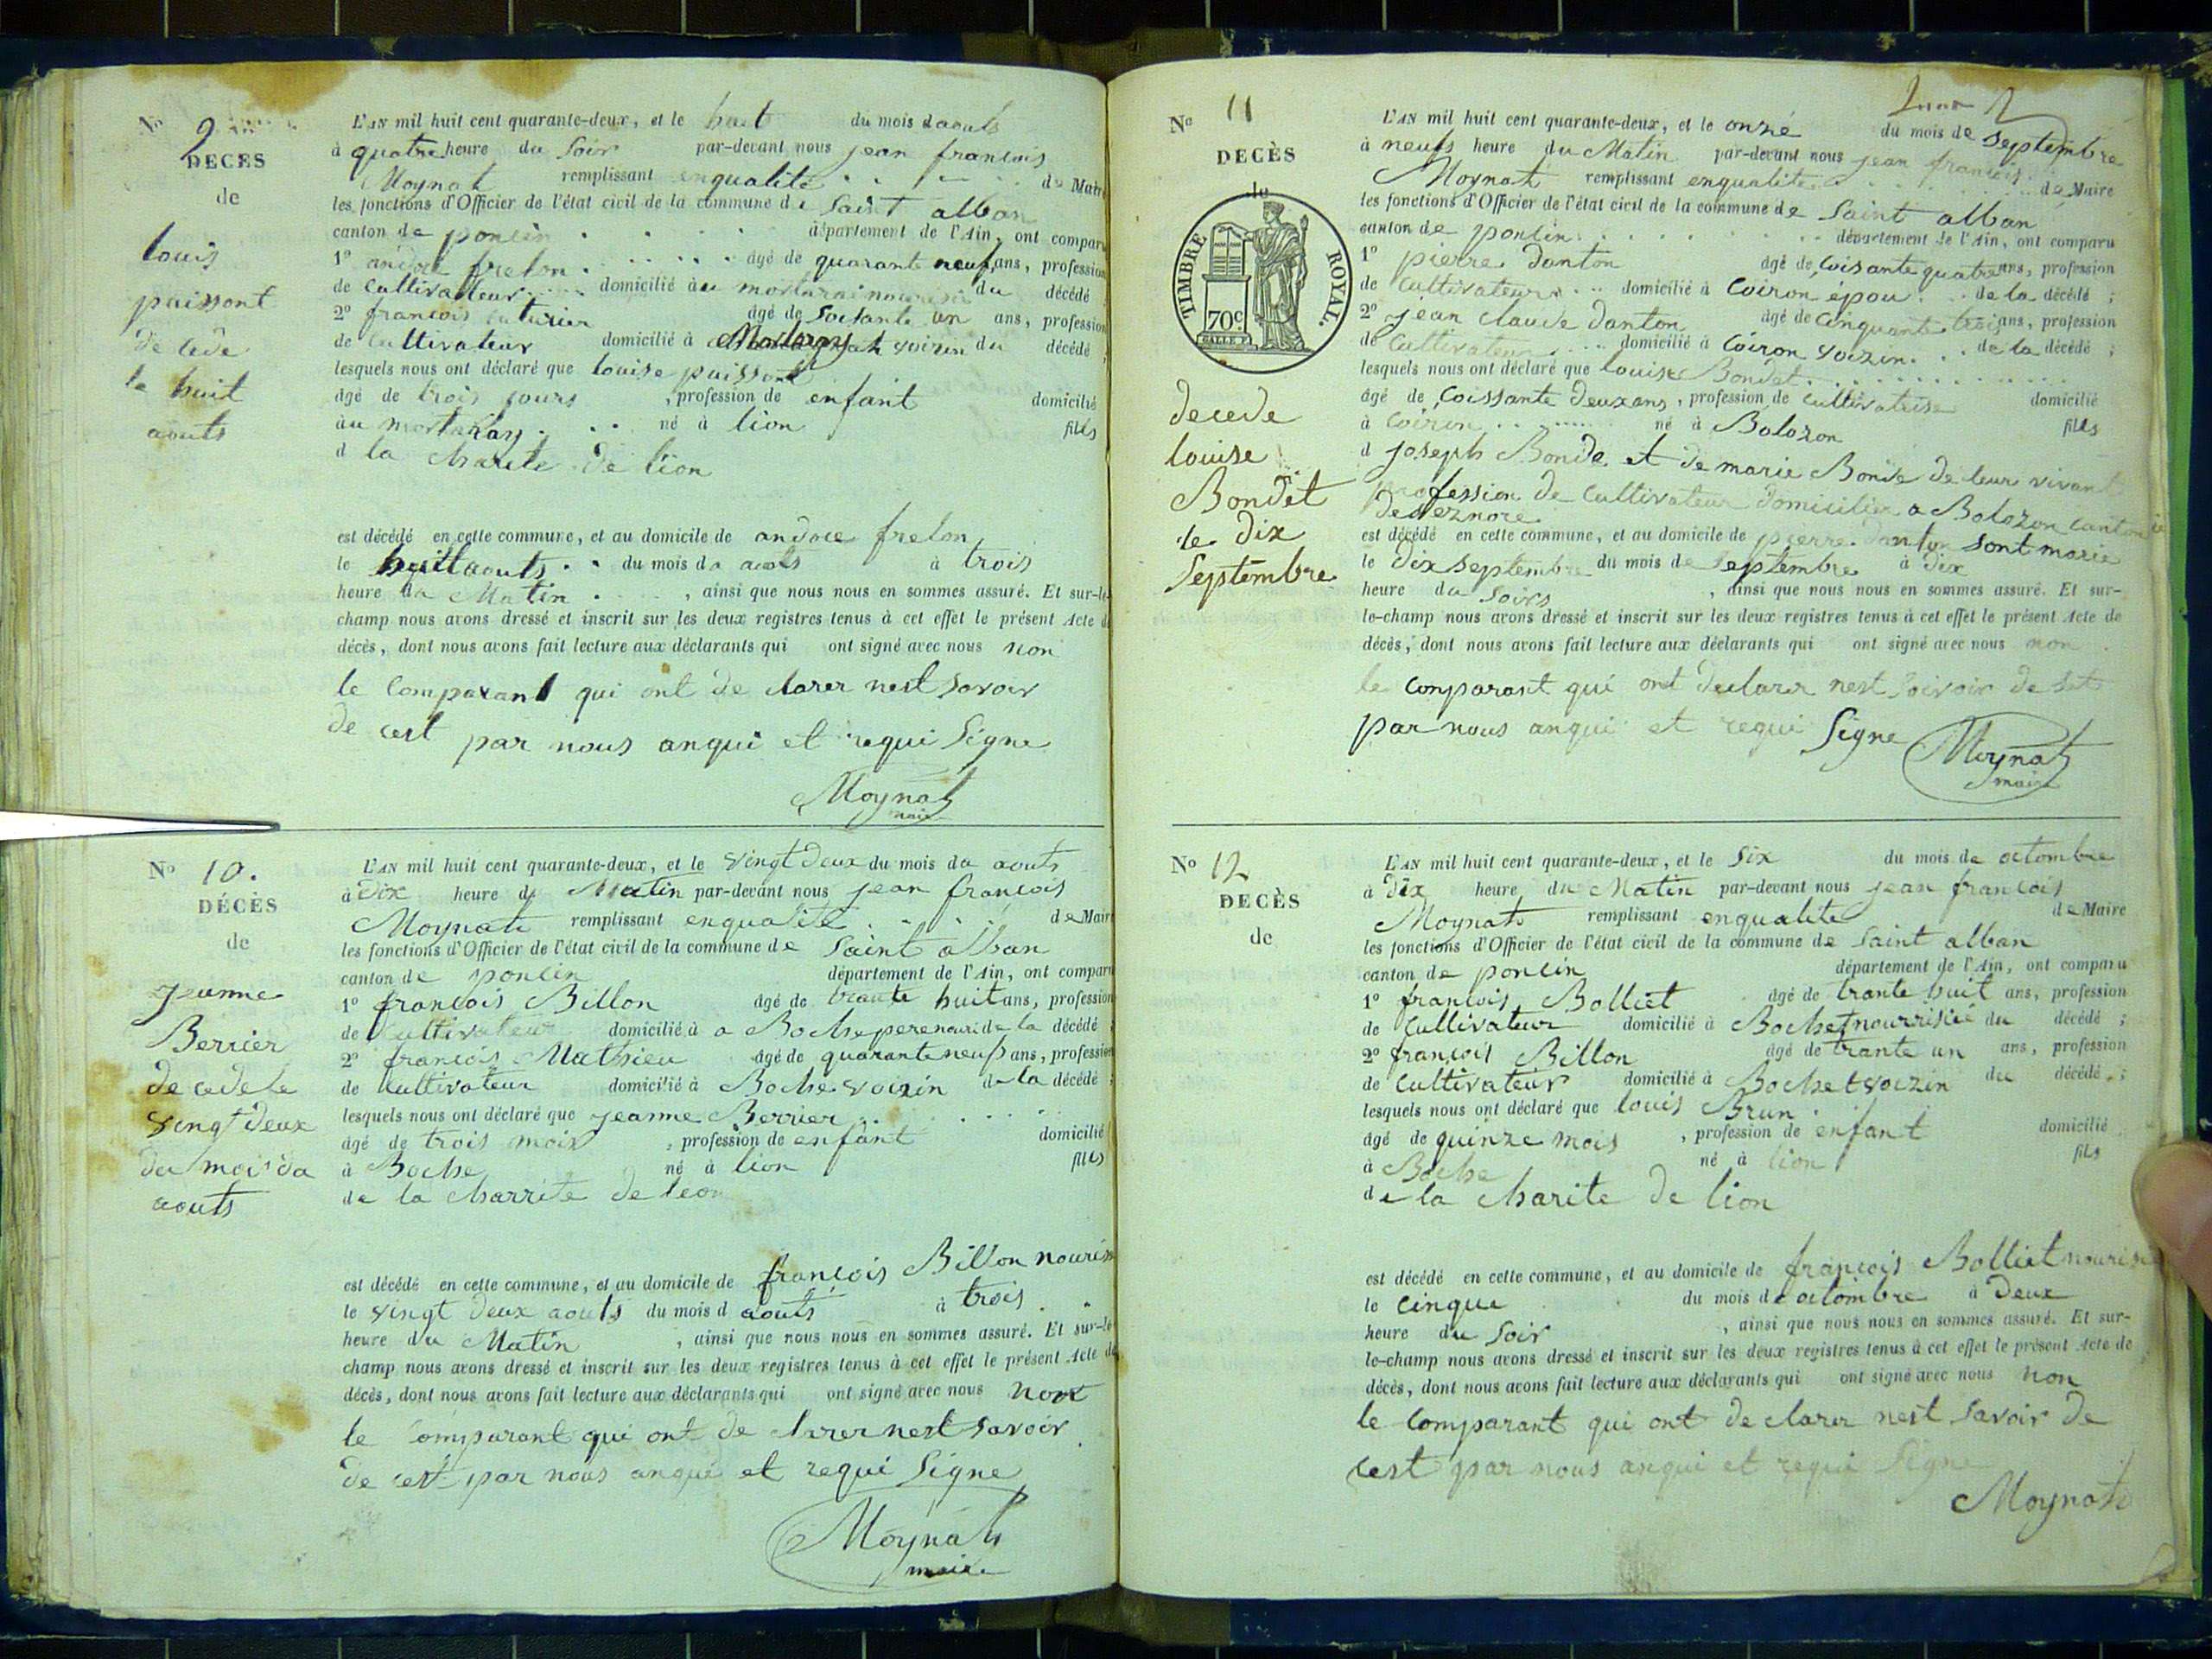 No 9
DECES
de
louis
puissont
de cede
le huit
aouts
L'AN mil huit cent quarante-deux, et le huit du mois d aouts
à quatre heure du Soir par-devant nous jean francois
Moynat remplissant enqualité de Maire
les fonctions d'Officier de l'état civil de la commune de Saint alban
canton de poncin département de l'Ain, ont comparu
1° andore frelon âgé de quarante neuf ans, profession
de Cultivateur domicilié à au du décédé
2° francois âgé de Soisante un ans, profession
de Cultivateur domicilié à voizin du décédé ;
lesquels nous ont déclaré que louise puissont
âgé de trois jours , profession de enfant domicilié
à au né à lion fills
d la charite de lion
est décédé en cette commune, et au domicile de andore frelon
le huit aouts du mois de aouts à trois
heure du Matin , ainsi que nous nous en sommes assuré. Et sur-le-
champ nous avons dressé et inscrit sur les deux registres tenus à cet effet le présent Acte de
décès, dont nous avons fait lecture aux déclarants qui ont signé avec nous non
le Comparant qui ont de clarer nest Savoir
de cest par nous anqui et requi Signe
Moynat
maire
No 10.
DÉCÈS
de
jeanne
Berrier
de cede le
vingt deux
du mois da
aouts
L'AN mil huit cent quarante-deux, et le vingt deux du mois da aouts
à Dix heure d Matin par-devant nous jean francois
Moynat remplissant enqualité de Maire
les fonctions d'Officier de l'état civil de la commune de Saint alban
canton de poncin département de l'Ain, ont comparu
1° francois Billon âgé de trante huit ans, profession
de Cultivateur domicilié à a Boche pere nouri de la décédé ;
2° francois Mathieu âgé de quarante neuf ans, profession
de Cultivateur domicilié à Boche voizin de la décédé ;
lesquels nous ont déclaré que jeanne Berrier
âgé de trois mois , profession de enfant domicilié
à Boche né à lion fills
de la charrite de leon
est décédé en cette commune, et au domicile de francois Billon
le vingt deux aouts du mois d aouts à trois
heure du Matin , ainsi que nous nous en sommes assuré. Et sur-le-
champ nous avons dressé et inscrit sur les deux registres tenus à cet effet le présent Acte de
décès, dont nous avons fait lecture aux déclarants qui ont signé avec nous non
le Comparant qui ont de clarer nest savoir
de cest par nous anqui et requi Signe
Moynat
maire
No 11
DECÈS
de
TIMBRE ROYAL.
70c
decede
louise
Bondet
le dix
Septembre
L'AN mil huit cent quarante-deux, et le onzé du mois de Septembre
à neufs heure du Matin par-devant nous jean francois
Moynat remplissant enqualite de Maire
les fonctions d'Officier de l'état civil de la commune de Saint alban
canton de poncin département de l'Ain, ont comparu
1° pierre Danton âgé de Coisante quatre ans, profession
de Cultivateur domicilié à Coiron épou de la décédé ;
2° jean claude Danton âgé de Cinquante trois ans, profession
de Cultivateur domicilié à Coiron voizin de la décédé ;
lesquels nous ont déclaré que louise Bondet
âgé de Coissante Deux ans , profession de Cultivateise domicilié
à Coiron né à Bolozon fills
d joseph Bonde et de marie Bonde de leur vivant
profession de Cultivateur domicilier a Bolozon canton
Dedeznore
est décédé en cette commune, et au domicile de pierre Danton sont marie
le Dix Septembre du mois de Septembre à Dix
heure du Soirs , ainsi que nous nous en sommes assuré. Et sur-
le-champ nous avons dressé et inscrit sur les deux registres tenus à cet effet le présent Acte de
décès, dont nous avons fait lecture aux déclarants qui ont signé avec nous non
le Comparant qui ont declarer nest Soivoir de set
par nous anqui et requi Signe
Moynat
maire
No 12
DECÈS
de
L'AN mil huit cent quarante-deux, et le Six du mois de octombre
à Dix heure du Matin par-devant nous jean francois
Moynat remplissant enqualite de Maire
les fonctions d'Officier de l'état civil de la commune de Saint alban
canton de poncin département de l'Ain, ont comparu
1° francois Bolliet âgé de trante huit ans, profession
de Cultivateur domicilié à Bochet nourrisié du décédé ;
2° francois Billon âgé de trante un ans, profession
de Cultivateur domicilié à Bochet voizin du décédé ;
lesquels nous ont déclaré que louis Brun
âgé de quinze mois , profession de enfant domicilié
à Boche né à lion fils
de la charite de lion
est décédé en cette commune, et au domicile de francois Bolliet
le cinque du mois de octombre à Deux
heure du Soir , ainsi que nous nous en sommes assuré. Et sur-
le-champ nous avons dressé et inscrit sur les deux registres tenus à cet effet le présent Acte de
décès, dont nous avons fait lecture aux déclarants qui ont signé avec nous non
le Comparant qui ont de clarer nest Savoir de
cest par nous anqui et requi Signe
Moynat